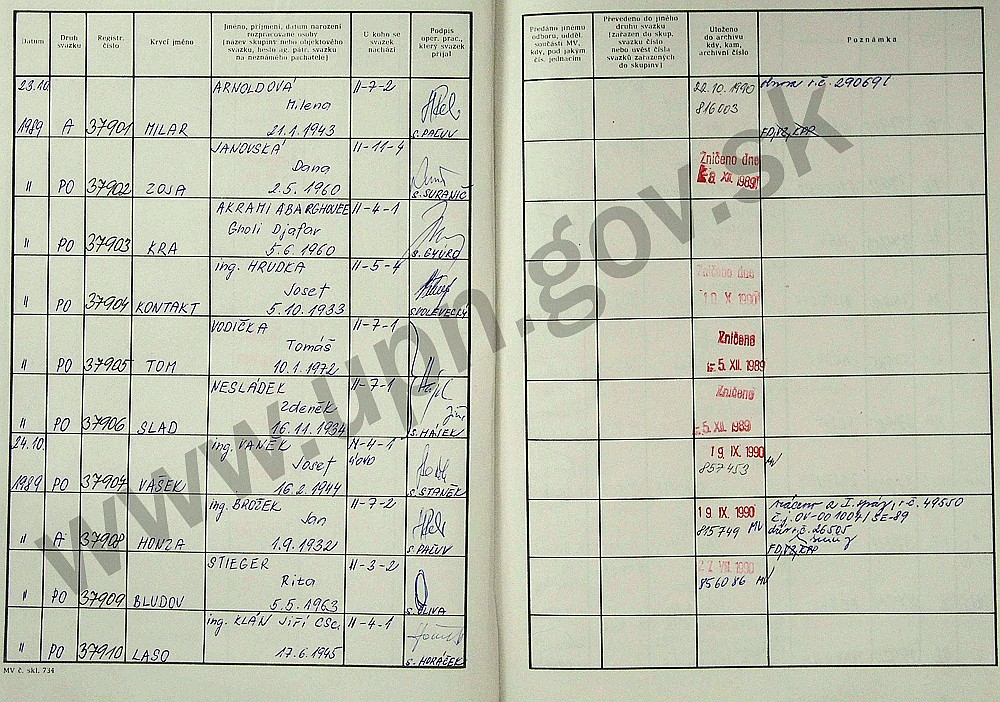 Datum
Druh svazku
Registr. číslo
Krycí jméno
Jméno, příjmení, datum narození rozpracované osoby (název skupiny nebo objektového svazku, heslo ag. pátr. svazku na neznámého pachatele)
U koho se svazek nachází
Podpis oper. prac., který svazek přijal
Předáno jinému odboru, odděl. součásti MV, kdy, pod jakým čís. jednacím
Převedeno do jiného druhu svazku (zařazen do skup. svazku číslo nebo uvést čísla svazků zařazených do skupiny)
Uloženo do archivu kdy, kam, archivní číslo
Poznámka
23.10. 1989 A 37901 MILAR ARNOLDOVÁ Milena 21.1.1943 II-7-2 22.10.1990 816003 r.č. 29069
" PO 37902 ZOJA JANOVSKÁ Dana 2.5.1960 II-11-4 S.SURANIČ Zničeno dne 8. XII. 1989
" PO 37903 KRA AKRAMI ABARGHOUEE Gholi Djafar 5.6.1960 II-4-1
" PO 37904 KONTAKT ing. HRUDKA Josef 5.10.1933 II-5-4 Zničeno dne 10. X. 1990
" PO 37905 TOM VODIČKA Tomáš 10.1.1972 II-7-1 Zničeno -5. XII. 1989
" PO 37906 SLAD NESLÁDEK Zdeněk 16.11.1934 II-7-1 S.HÁJEK Zničeno -5. XII. 1989
24.10. 1989 PO 37907 VAŠEK ing. VANĚK Josef 16.2.1944 II-4-1 S.STANĚK 19. IX. 1990 857453 MV
" A 37908 HONZA ing. BROŽEK Jan 1.9.1932 II-7-2 19 IX. 1990 815749 MV
" PO 37909 BLUDOV STIEGER Rita 5.5.1963 II-3-2 S.OLIVA 27. VIII. 1990 856086 MV
" PO 37910 LASO ing. KLÁN Jiří CSc. 17.6.1945 II-4-1 S.HORÁČEK
MV č. skl. 734
www.upn.gov.sk